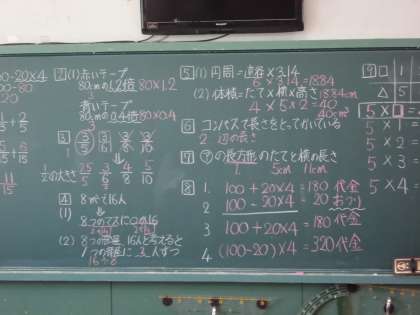 00-20×4
00-80
20
1/5 + 2/5
11/15
2 (1) 赤いテープ
80cmの1.2倍 80×1.2
青いテープ
80cmの0.4倍 80×0.4
3 3/5 3/3 3/6 3/8
1/2の大きさ 25/5 3/6 4/8 5/10
4 8かで16人
(1)
8つのマスに〇の16
(2) 8つの部屋 16人と考えると
1つの部屋に 3人ずつ
16÷8
5 (1) 円周=直径×3.14
6×3.14=18.84
(2) 体積=たて×横×高さ 18.84cm
4×5×2=40
40cm³
6 コンパスで長さをとってかいている
2 辺の長さ
7 ㋐の長方形のたてと横の長さ
5cm 11cm
8 1. 100+20×4=180 代金
2 100-20×4=20 おつり
3 100+20×4=180 代金
4 (100-20)×4=320 代金
9 □ 1
△ 5
5×□
5×1=
5×2=
5×3=
5×4=